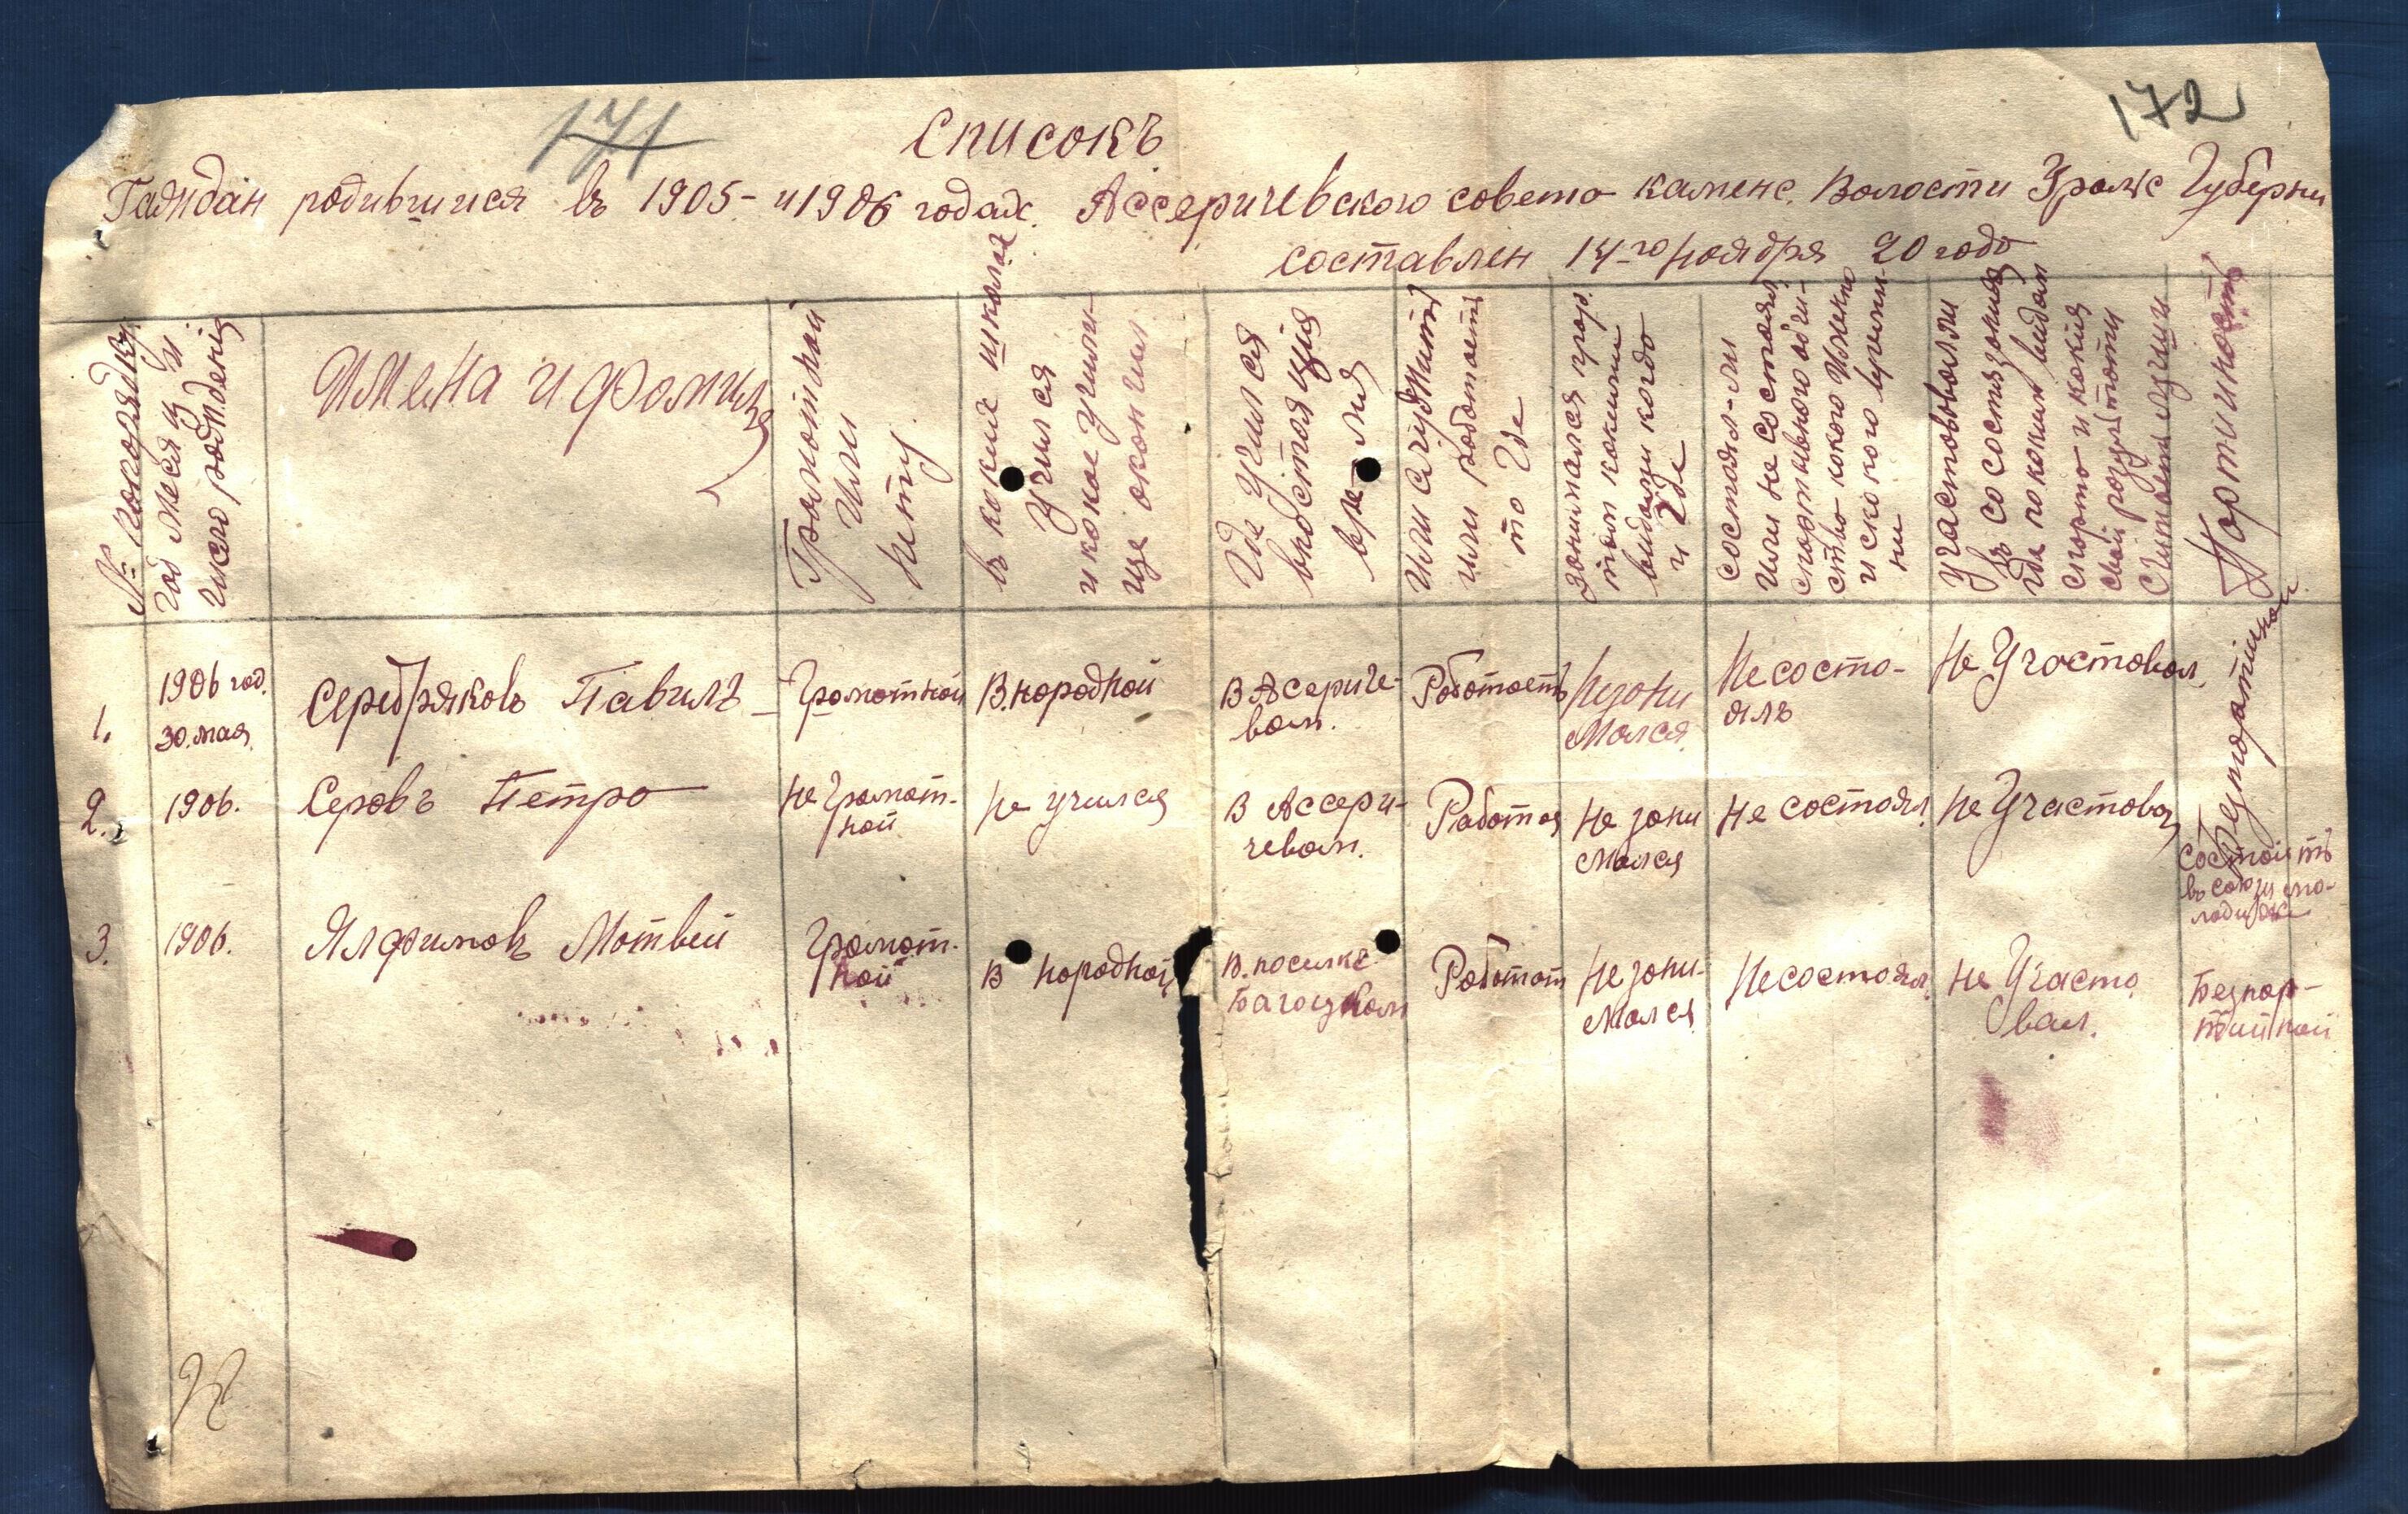 171
172
Списокъ
Гаждан родившися въ 1905- и 1906 годах. Ассеричевского совето каменс. Волости Уралс Губерни
составлен 14-го ноября 20 годо
№ попорядку.
год Месяц и
число рожденія
Имена и фомилия
Громотной
Или
нету
въ коких школах
Учился
и кокое учили-
ще окончил
Где училса
вностоящія
время
Или служитъ
или роботоет
то Где
зонимался спор.
том кокими
видами когдо
и Где
состоял-ли
Или не состоял
спортивного обчи-
ство кокого Имено
и ского времи-
ни
Участововал ли
въ состязония
где по коким видам
спорто и кокия
свои розултоти
Считает лучши
Портийность
1.
1906 год.
30. мая.
Серебряковъ Павилъ
Громотной
В. нородной
В Асериче-
вом.
Роботоетъ
Незони
мался.
Не состо-
ялъ
Не Учостовол
Безпортийной
2.
1906.
Серовъ Петро
не Громот-
ной
не училса
В Ассери-
чевом.
Работоя
Не зони
мался
Не состоял.
не Участовол
Состоитъ
въ союзи мо-
лодижи
3.
1906.
Ялфимовъ Мотвей
Громот-
ной
В нородной
В. поселке
Багоцком
Роботот
Не зони-
мался
Не состоял.
не Учосто
вал.
Безпор-
тийной